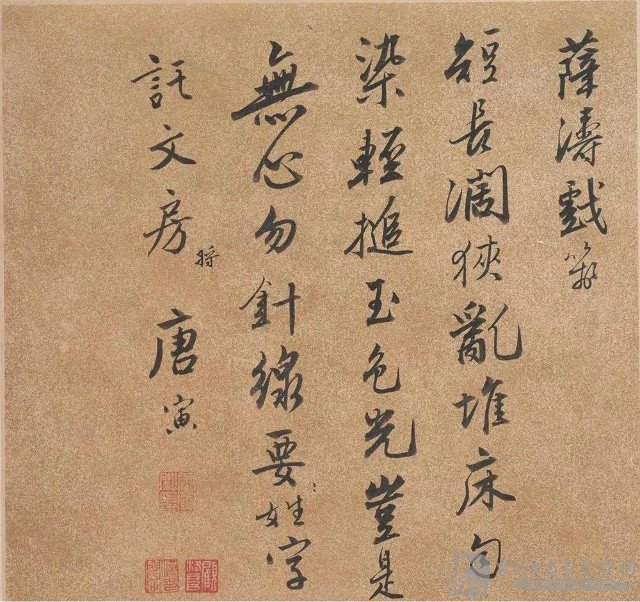 薛濤戲箋
短長濶狹亂堆床勻
染輕搥玉色光豈是
無心勿針線要姓字
託文房 將 唐寅